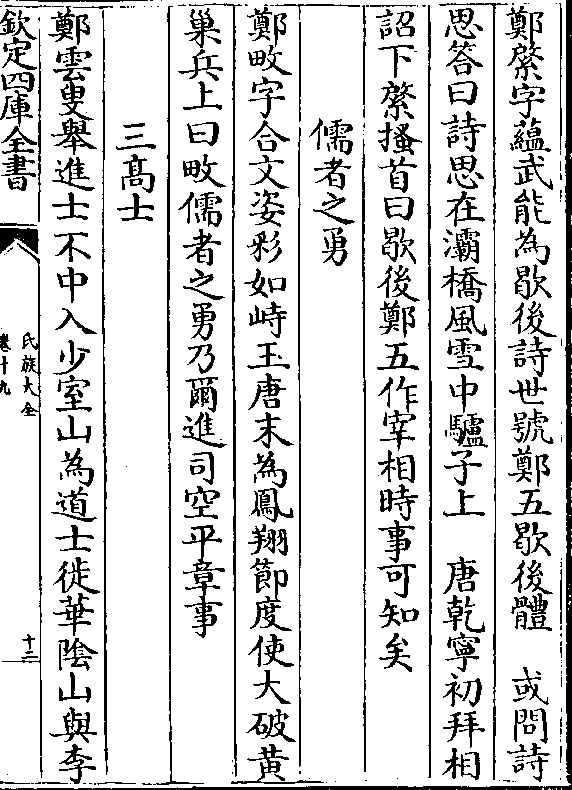 鄭綮字藴武能為歇後詩世號鄭五歇後體　或問詩
思答曰詩思在灞橋風雪中驢子上　唐乾寧初拜相
詔下綮搔首曰歇後鄭五作宰相時事可知矣
儒者之勇
鄭畋字台文姿彩如峙玉唐末為鳳翔節度使大破黄
巢兵上曰畋儒者之勇乃爾進司空平章事
三髙士
鄭雲叟舉進士不中入少室山為道士徙華陰山與李
欽定四庫全書
氏族大全
卷十九
十二